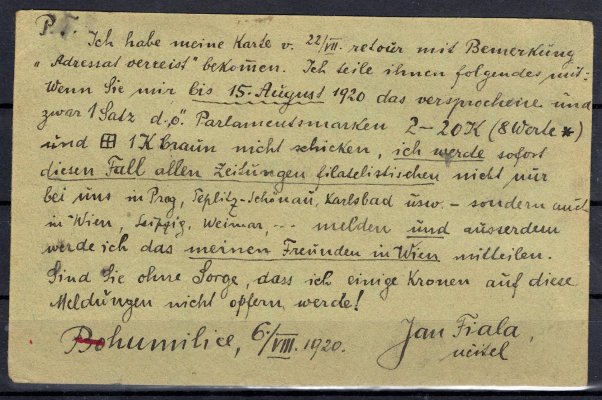 P.T. Ich habe meine Karte v. 22/VII. retour mit Bemerkung
„Adressat verreist" bekommen. Ich teile ihnen folgendes mit:
Wenn Sie mir bis 15. August 1920 das versprochene und
zwar 1 Satz d.ö. Parlamentsmarken 2–20K (8 Werte *)
und ⊞ 1 K braun nicht schicken, ich werde sofort
diesen Fall allen Zeitungen filatelistischen nicht nur
bei uns in Prag, Teplitz-Schönau, Karlsbad usw. – sondern auch
in Wien, Leipzig, Weimar, ... melden und ausserdem
werde ich das meinen Freunden in Wien mitteilen.
Sind Sie ohne Sorge, dass ich einige Kronen auf diese
Meldungen nicht opfern werde!
Bohumilice, 6./VIII. 1920. Jan Fiala,
učitel